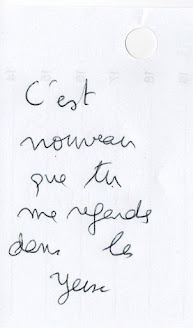 C'est
nouveau
que tu
me regardes
dans les
yeux